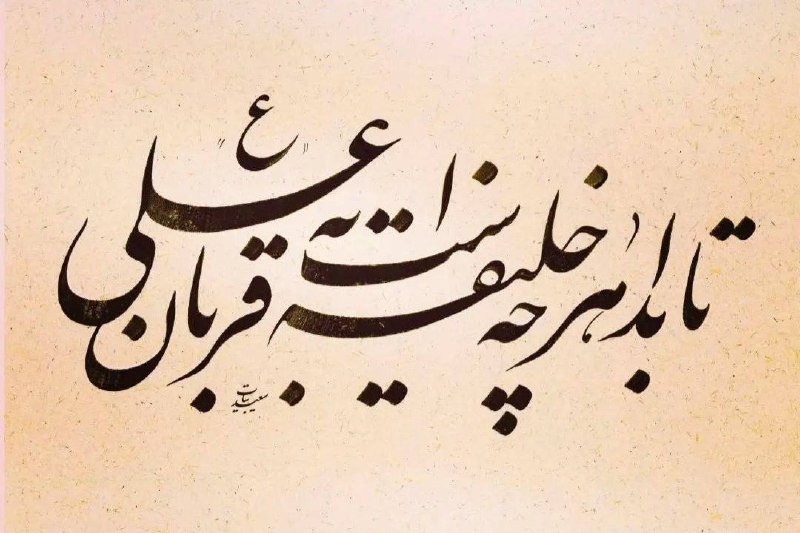 تا ابد هر چه خلیفه است به قربان علی "ع"
سعید بیات